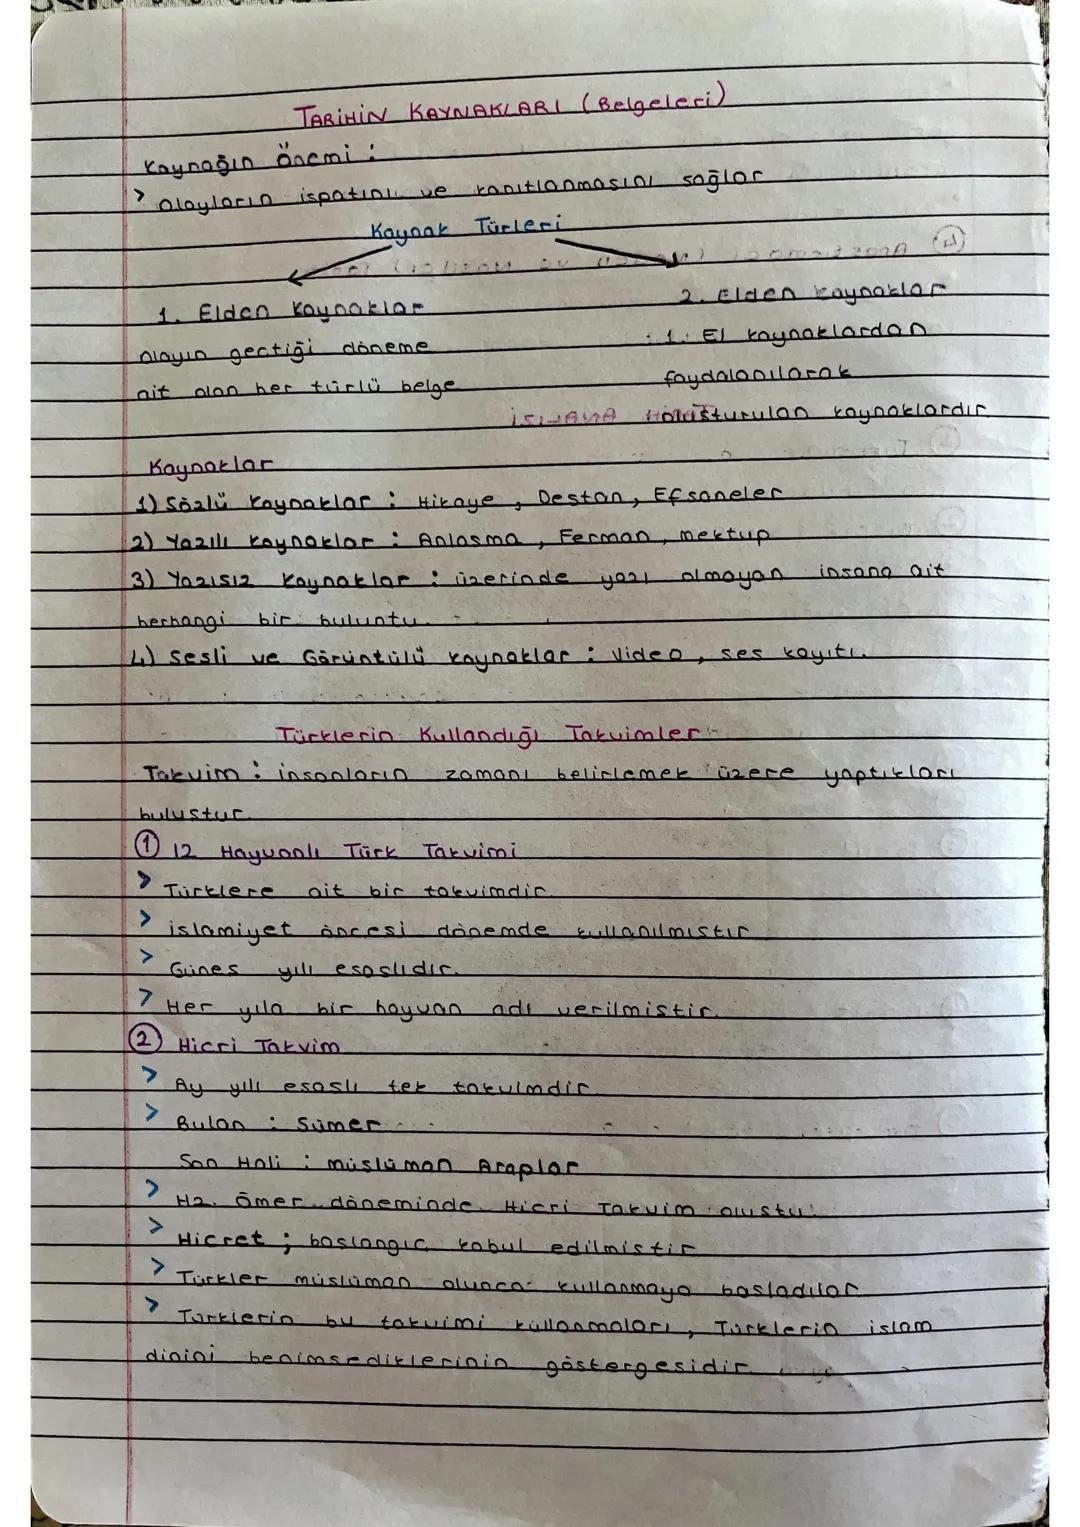 TARİHİN KAYNAKLARI (Belgeleri)
Kaynağın Önemi :
> Olayların ispatını ve kanıtlanmasını sağlar
Kaynak Türleri
1. Elden Kaynaklar
2. Elden kaynaklar
Olayın geçtiği döneme
1. El kaynaklardan
ait olan her türlü belge
faydalanılarak
oluşturulan kaynaklardır
Kaynaklar
1) Sözlü Kaynaklar : Hikaye , Destan, Efsaneler
2) Yazılı kaynaklar : Anlasma , Ferman , mektup
3) Yazısız Kaynaklar : üzerinde yazı olmayan insana ait
herhangi bir buluntu.
4) Sesli ve Görüntülü kaynaklar : Video , ses kayıtı.
Türklerin Kullandığı Takvimler
Takvim : insanların zamanı belirlemek üzere yaptıkları
bulustur.
① 12 Hayvanlı Türk Takvimi
> Türklere ait bir takvimdir.
> islamiyet öncesi dönemde kullanılmıstır
> Günes yılı esaslıdır.
> Her yıla bir hayvan adı verilmistir.
② Hicri Takvim
> Ay yılı esaslı tek takvimdir.
> Bulan : Sümer
Son Hali : müslüman Araplar
> Hz. Ömer döneminde Hicri Takvim olustu.
> Hicret ; baslangıc kabul edilmistir
> Türkler müslüman olunca kullanmaya basladılar
> Türklerin bu takvimi kullanmaları , Türklerin islam
dinini benimsediklerinin göstergesidir.